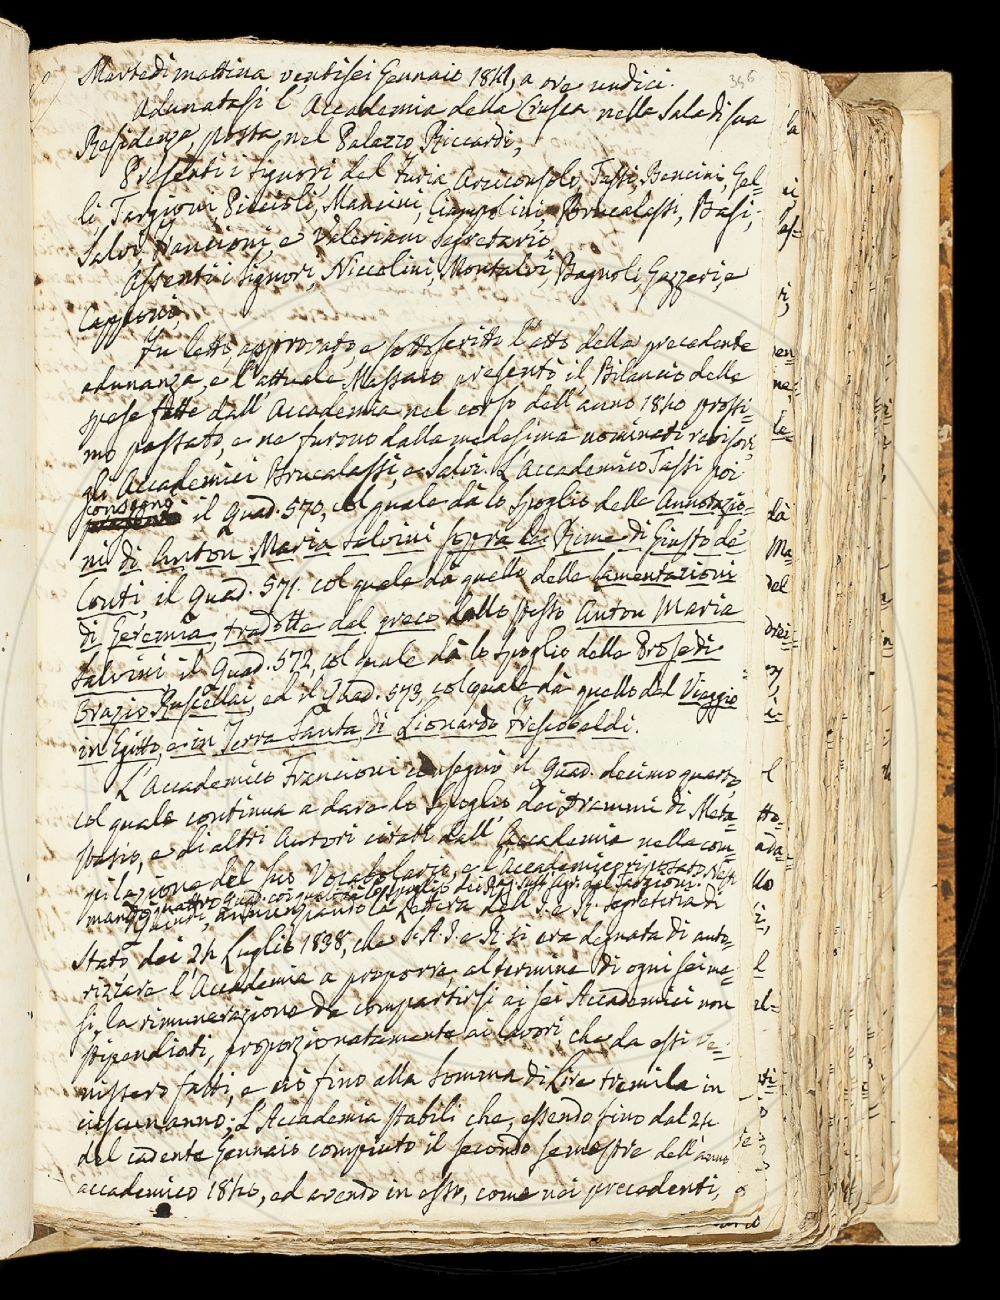 346
Martedì mattina ventisei Gennaio 1841, a ore undici.
Adunatasi l'Accademia della Crusca nella Sala di sua
Residenza, posta nel Palazzo Riccardi,
Presenti i Signori del Furia Arciconsolo, Tassi, Bencini, Gel=
li, Targioni, Piccioli, Mancini, Ciampolini, Brucalassi, Basi,
Salvi, Francioni, e Valeriani Segretario,
Assenti i Signori, Niccolini, Montalvi, Bagnoli, Gazzeri, e
Capponi,
Fu letto, approvato, e sottoscritto l'atto della precedente
adunanza, e l'attuale Massaio presentò il Bilancio delle
spese fatte dall'Accademia nel corso dell'anno 1840 prossi=
mo passato, e ne furono dalla medesima nominati revisori,
gli Accademici Brucalassi, e Salvi. L'Accademico Tassi poi
consegnò il Quad. 570, col quale dà lo spoglio delle Annotazio=
ni di Anton Maria Salvini sopra le Rime di Giusto de'
Conti, il Quad. 571. col quale dà quello delle Lamentazioni
di Geremia, tradotte dal greco dallo stesso Anton Maria
Salvini il Quad. 572, col quale dà lo spoglio delle Prose di
Orazio Rucellai, ed il Quad. 573, col quale dà quello del Viaggio
in Egitto, e in Terra Santa, di Lionardo Frescobaldi.
L'Accademico Francioni consegnò il Quad. decimoquarto,
col quale continua a dare lo Spoglio dei Drammi di Meta=
stasio, e di altri Autori citati dall'Accademia nella com=
pilazione del suo Vocabolario, e l'Accademico
quattro Quad. coi quali dà lo spoglio dei
Quindi, annunziando la Lettera dell'I. e R. Segreteria di
Stato, dei 24 Luglio 1838, che S. A. I. e R. si era degnata di auto=
rizzare l'Accademia a proporre al termine di ogni seime=
si, la rimunerazione da compartirsi ai sei Accademici non
stipendiati, proporzionatamente ai lavori, che da essi ve=
nissero fatti, e ciò fino alla somma di Lire tremila in
ciascun anno; L'Accademia stabilì che, essendo fino dal 24
del cadente Gennaio compiuto il secondo semestre dell'anno
accademico 1840, ed avendo in esso, come nei precedenti,